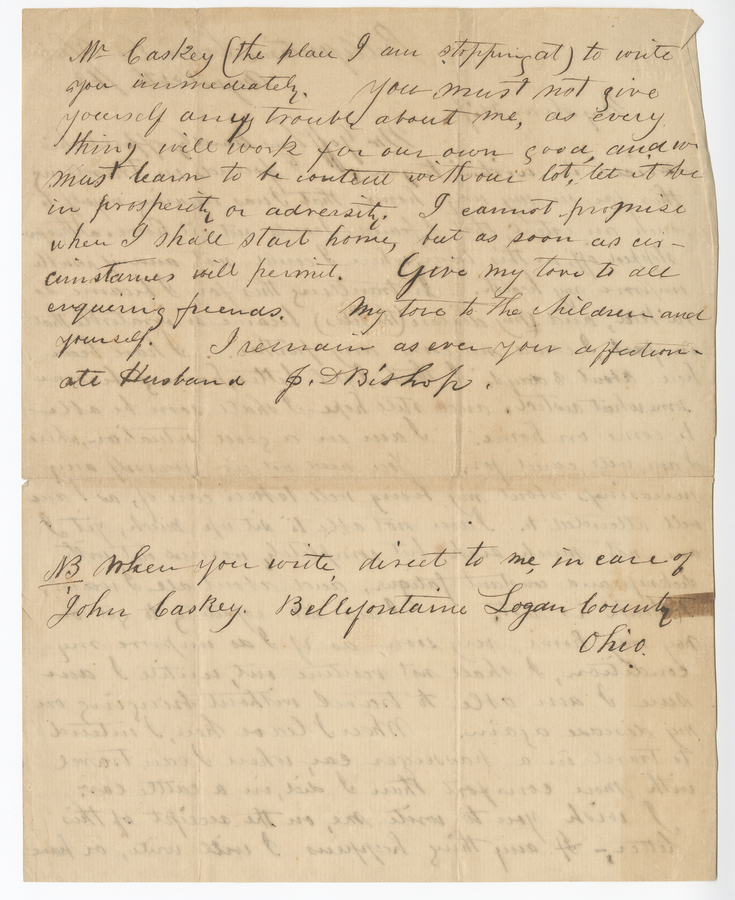 Mr Caskey (the place I am stopping at) to write
you immediately. You must not give
yourself any trouble about me, as every
thing will work for our own good, and w
must learn to be content with our lot, let it be
in prosperity or adversity. I cannot promise
when I shall start home, but as soon as cir-
cumstances will permit. Give my love to all
enquiring friends. My love to the children and
yourself. I remain as ever your affection-
ate Husband J. D Bishop.
NB When you write, direct to me, in care of
John Caskey. Bellefontaine Logan County
Ohio.